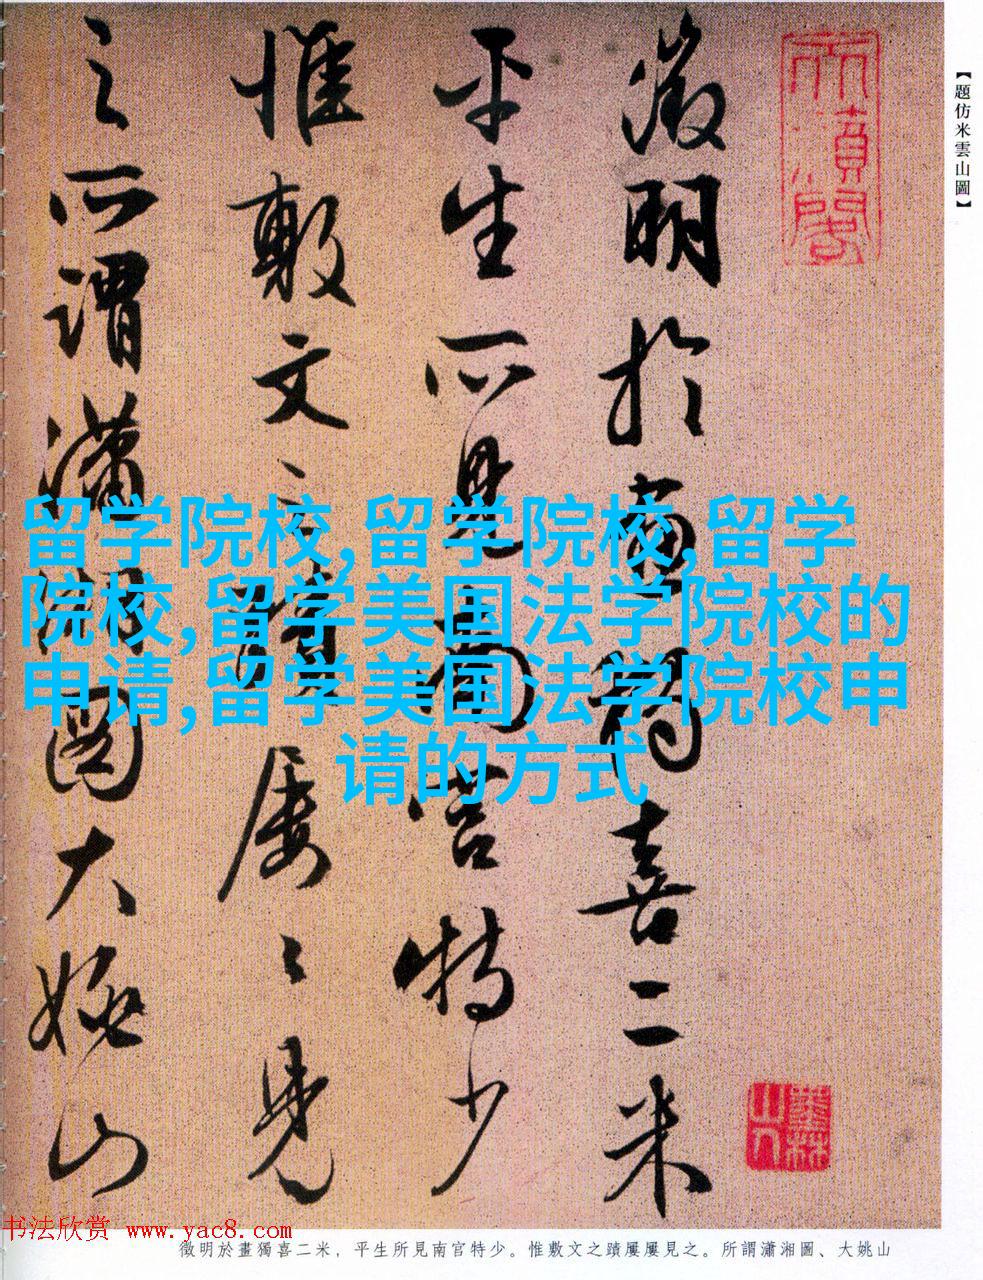 【題仿米雲山圖】
徵明於畫獨喜二米
平生所見南宮特少
惟敷文之蹟屢〻見
之所謂瀟湘圖大姚山
墨林山人
留学院校,留学院校,留学
院校,留学美国法学院校的
申请,留学美国法学院校申
请的方式
书法欣赏 www.yac8.com
徵明於畫獨喜二米，平生所見南宮特少。惟敷文之蹟屢屢見之。所謂瀟湘圖、大姚山